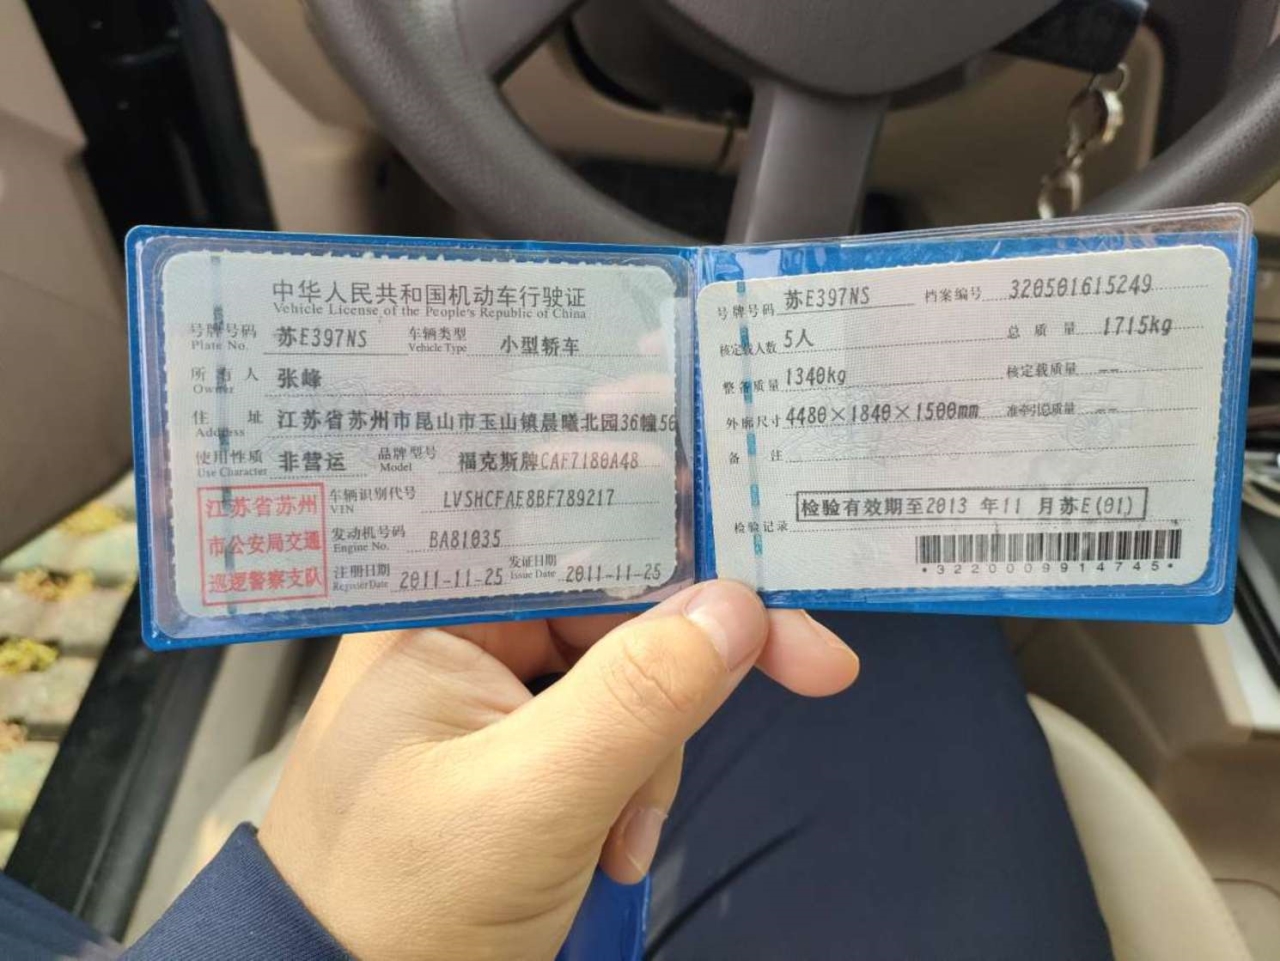 中华人民共和国机动车行驶证
Vehicle License of the People's Republic of China
号牌号码 苏E397NS 车辆类型 小型轿车
Plate No. Vehicle Type
所有人 张峰
Owner
住址 江苏省苏州市昆山市玉山镇晨曦北园36幢50
Address
使用性质 非营运 品牌型号 福克斯牌CAF7180A48
Use Character Model
江苏省苏州
市公安局交通
巡逻警察支队
车辆识别代号 LVSHCFAE8BF789217
VIN
发动机号码 BA81035
Engine No.
注册日期 2011-11-25 发证日期 2011-11-25
Register Date Issue Date
号牌号码 苏E397NS 档案编号 320501615249
核定载人数 5人 总质量 1715kg
整备质量 1340kg 核定载质量 --
外廓尺寸 4480×1840×1500mm 准牵引总质量 --
备注
检验记录 检验有效期至2013 年11 月苏E(01)
*3220009914745*